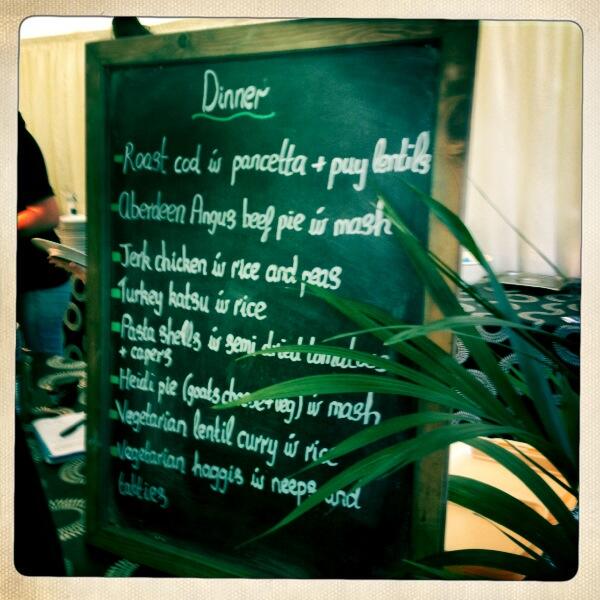 Dinner
-Roast cod w pancetta + puy lentils
-Aberdeen Angus beef pie w mash
-Jerk chicken w rice and peas
-Turkey katsu w rice
-Pasta shells w semi dried tomatoes
+ capers
-Heidi pie (goats cheese+veg) w mash
-Vegetarian lentil curry w rice
-Vegetarian haggis w neeps and
tatties